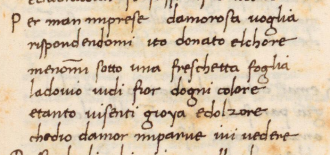 Per man imprese damorosa voglia
rispondendomi ito donato elchore
menomi sotto una freschetta foglia
ladovio vidi fior dogni colore
etanto visenti gioya edolzore
chedio damor mparve ivi vedere